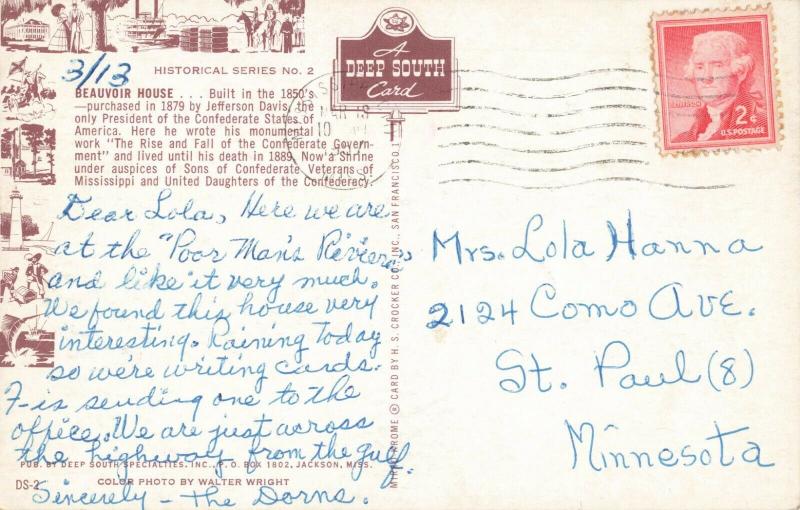 3/13
HISTORICAL SERIES No. 2
BEAUVOIR HOUSE . . . Built in the 1850's
—purchased in 1879 by Jefferson Davis, the
only President of the Confederate States of
America. Here he wrote his monumental
work "The Rise and Fall of the Confederate Govern-
ment" and lived until his death in 1889. Now a Shrine
under auspices of Sons of Confederate Veterans of
Mississippi and United Daughters of the Confederacy.
Dear Lola, Here we are
at the "Poor Man's Riviera"
and like it very much.
We found this house very
interesting. Raining today
so we're writing cards.
F- is sending one to the
office. We are just across
the highway from the gulf.
Sincerely - The Dorns.
PUB. BY DEEP SOUTH SPECIALTIES, INC., P. O. BOX 1802, JACKSON, MISS.
DS-2
COLOR PHOTO BY WALTER WRIGHT
A
DEEP SOUTH
Card
MIRRO-KROME ® CARD BY H. S. CROCKER CO., INC., SAN FRANCISCO, 1
2¢
U.S. POSTAGE
Mrs. Lola Hanna
2124 Como Ave.
St. Paul (8)
Minnesota